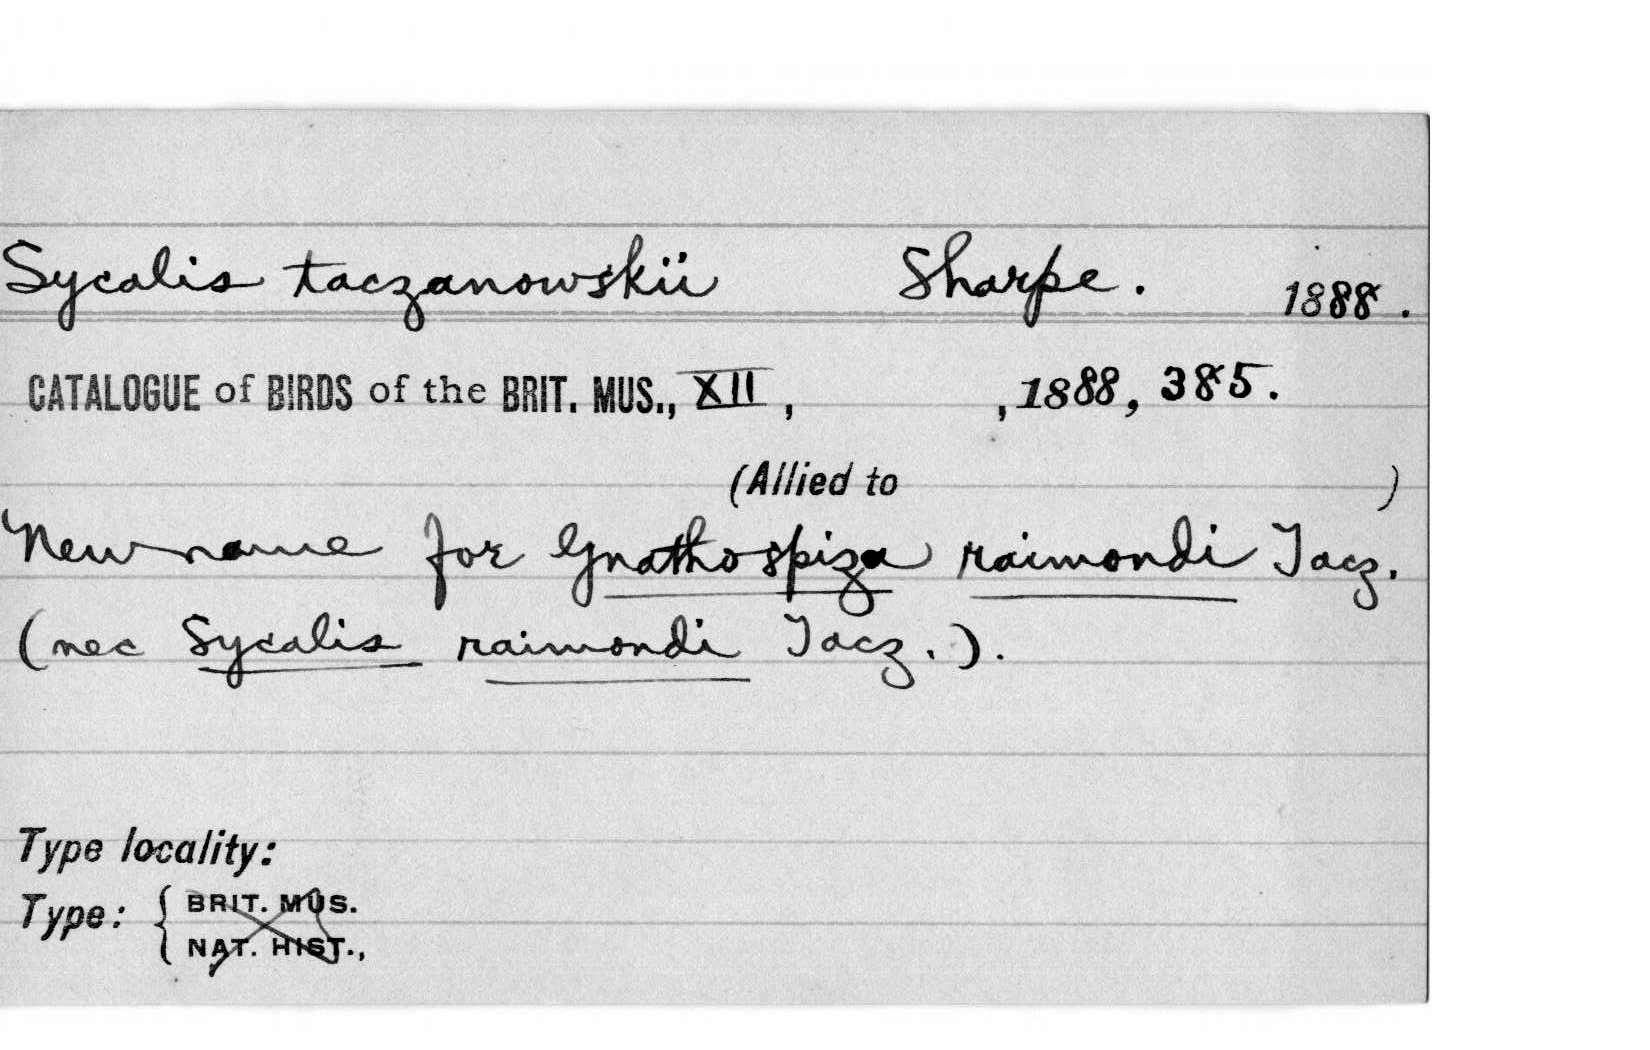 Sycalis taczanowskii Sharpe. 1888.
CATALOGUE of BIRDS of the BRIT. MUS., XII, , 1888, 385.
(Allied to )
New name for Gnathospiza raimondi Tacz.
(nec Sycalis raimondi Tacz.).
Type locality:
Type: { BRIT. MUS.
NAT. HIST.,